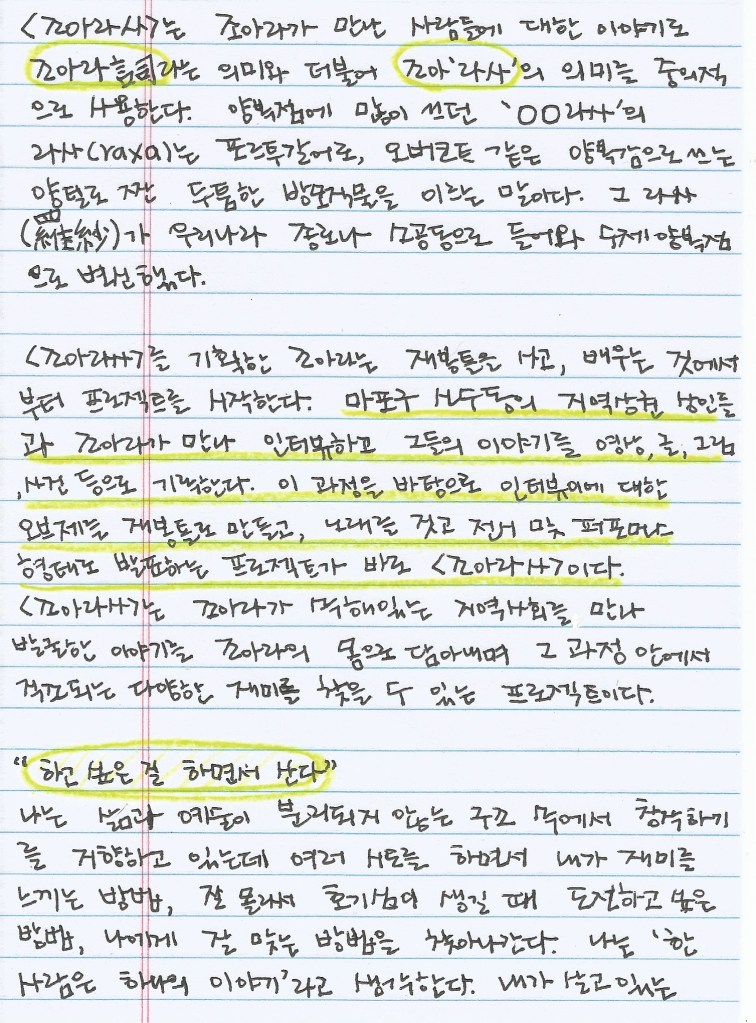 <조아라사>는 조아라가 만난 사람들에 대한 이야기로
조아라 라는 의미와 더불어 조아'라사'의 의미를 중의적
으로 사용한다. 양복점에 많이 쓰던 'OO라사'의
라사(raxa)는 포르투갈어로, 오버코트 같은 양복감으로 쓰는
양털로 짠 두툼한 방모직물을 이르는 말이다. 그 라사
(羅紗)가 우리나라 종로나 소공동으로 들어와 수제양복점
으로 변신했다.
<조아라사>를 기획한 조아라는 재봉틀을 사고, 배우는 것에서
부터 프로젝트를 시작한다. 마포구 신수동의 지역상권 상인들
과 조아라가 만나 인터뷰하고 그들의 이야기를 영상, 글, 그림
,사진 등으로 기록한다. 이 과정을 바탕으로 인터뷰이에 대한
오브제를 재봉틀로 만들고, 노래를 짓고 전시 및 퍼포먼스
형태로 발표하는 프로젝트가 바로 <조아라사>이다.
<조아라사>는 조아라가 속해있는 지역사회를 만나
발굴한 이야기를 조아라의 몸으로 담아내며 그 과정 안에서
직조되는 다양한 재미를 찾을 수 있는 프로젝트이다.
"하고 싶은 걸 하면서 산다"
나는 삶과 예술이 분리되지 않는 구조 속에서 창작하기
를 지향하고 있는데 여러 시도를 하면서 내가 재미를
느끼는 방법, 잘 몰라서 호기심이 생길 때 도전하고 싶은
방법, 나에게 잘 맞는 방법을 찾아나간다. 나는 '한
사람은 하나의 이야기'라고 생각한다. 내가 살고있는